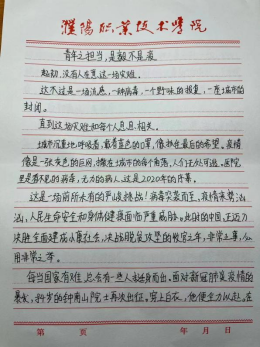 濮阳职业技术学院
青年之担当,是毅不是凌
起初,没有人在意这一场灾难,
这不过是一场流感,一种病毒,一个野味的报复,一座城市的
封闭。
直到这场灾难和每个人息息相关。
城市沉重地呼吸着,戴着蓝色的口罩,像救在最后的希望。疫情
像是一张灰色的巨网,横在城市的每个角落,人们无处可逃。医院
里是看不见的病毒,无力的病人,这是2020年的序幕。
这是一场前所未有的严峻挑战!病毒突袭而至,疫情来势汹
汹,人民生命安全和身体健康面临严重威胁。此时的中国,正迈力
决胜全面建成小康社会,决战脱贫攻坚的收官之年,非常之事,必
用非常之举。
每当国家有难,总会有一些人挺身而出。面对新冠肺炎疫情的
袭来,84岁的钟南山院士再次出征。穿上白衣,他便全力以赴,在
第 页 年 月 日